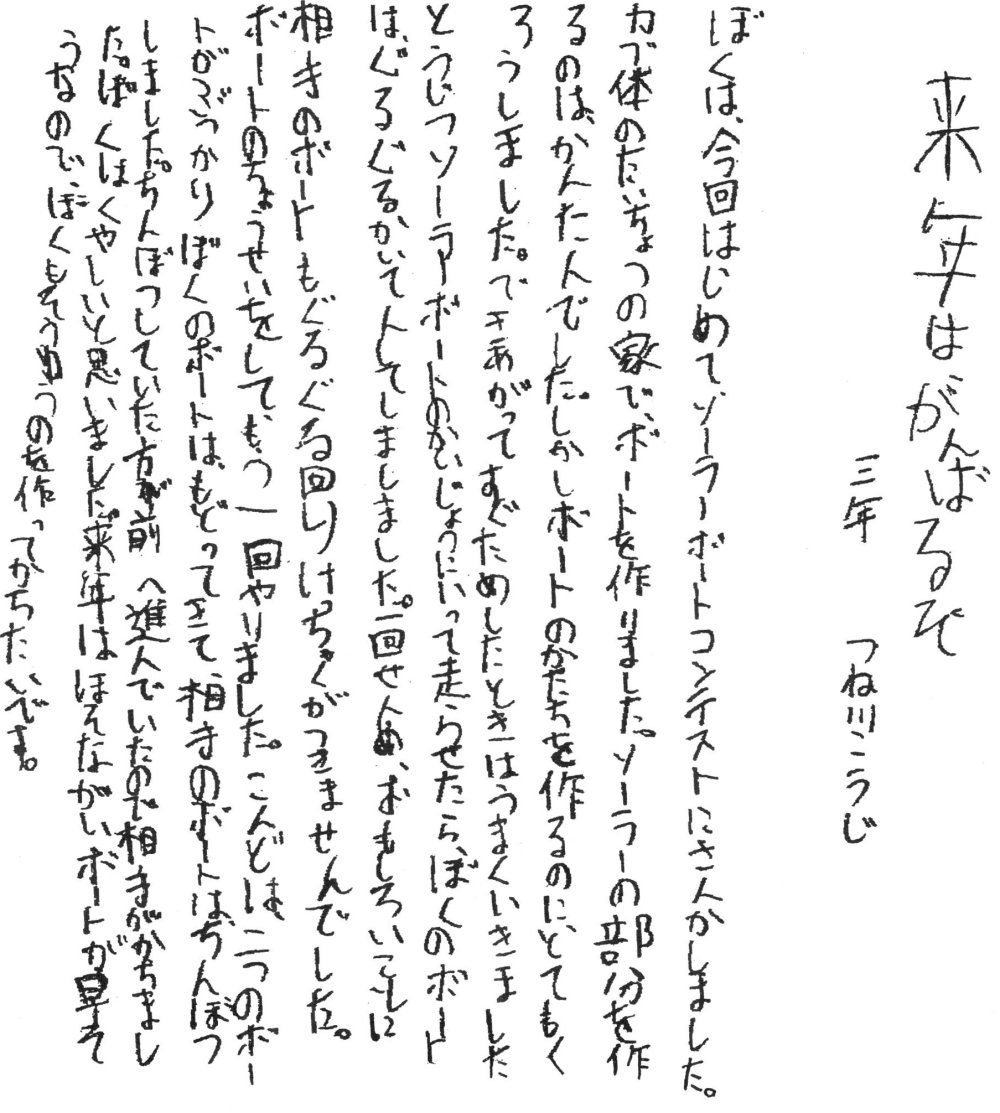 来年はがんばるぞ
三年　つね川こうじ
ぼくは、今回はじめてソーラーボートコンテストにさんかしました。
カブ体のたいちょうの家で、ボートを作りました。ソーラーの部分を作
るのは、かんたんでした。しかしボートのかたちを作るのに、とてもく
ろうしました。できあがってすぐためしたときはうまくいきました
とうじつソーラーボートのかいじょうにいって走らせたら、ぼくのボート
は、ぐるぐるかいてんしてしまいました。一回せんめ、おもしろいことに
相手のボートもぐるぐる回りけっちゃくがつきませんでした。
ボートのちょうせいをしてもう一回やりました。こんどは、二つのボー
トがぶつかりぼくのボートは、もどってきて、相手のボートは、ちんぼつ
しました。ちんぼつしていた方が前へ進んでいたので相手がかちまし
た。ぼくはくやしいと思いました。来年はほそながいボートが早そ
うなので、ぼくもそうゆうのを作ってかちたいです。